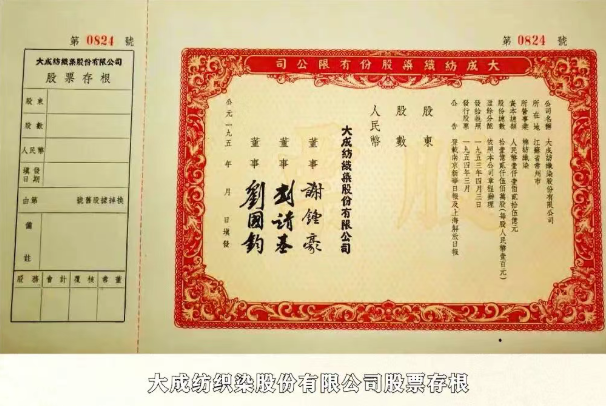 第 0824 號
大成紡織染股份有限公司
股票存根
股東
股數
人民幣
填發日期
換掉據股舊號
備註
股務
會計
覆核
董常
第 0824 號
司公限有份股染織紡成大
公司名稱 大成紡織染股份有限公司
所在地 江蘇省常州市
所營事業 棉紡織染
資本總額 人民幣壹仟壹佰貳拾伍億元
股份總數 拾壹億貳仟伍佰萬股(每股人民幣壹百元)
盈餘分配 依照本公司章程辦理
登記核照 一九五三年四月三日
發行股票 一九五四年三月
公告 登載南京新華日報及上海解放日報
股東
股數
人民幣
大成紡織染股份有限公司
董事 謝鍾豪
董事 劉靖基
董事 劉國鈞
公元一九五 年 月 日填發
大成纺织染股份有限公司股票存根